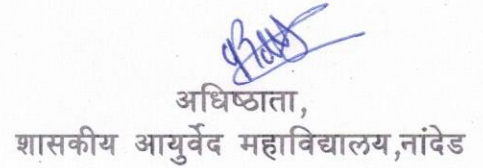 अधिष्ठाता,
शासकीय आयुर्वेद महाविद्यालय,नांदेड